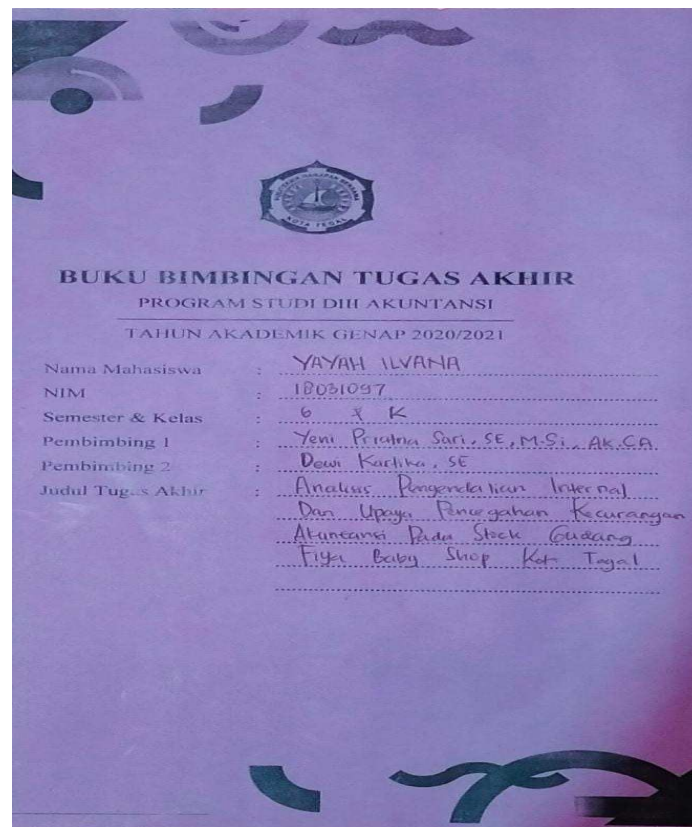 POLITEKNIK HARAPAN BERSAMA
KOTA TEGAL
BUKU BIMBINGAN TUGAS AKHIR
PROGRAM STUDI DIII AKUNTANSI
TAHUN AKADEMIK GENAP 2020/2021
Nama Mahasiswa : YAYAH ILVANA
NIM : 18031097
Semester & Kelas : 6 & K
Pembimbing 1 : Yeni Priatna Sari, SE, M.Si, Ak.CA
Pembimbing 2 : Dewi Kartika, SE
Judul Tugas Akhir : Analisis Pengendalian Internal
Dan Upaya Pencegahan Kecurangan
Akuntansi Pada Stock Gudang
Fiya Baby Shop Kota Tegal